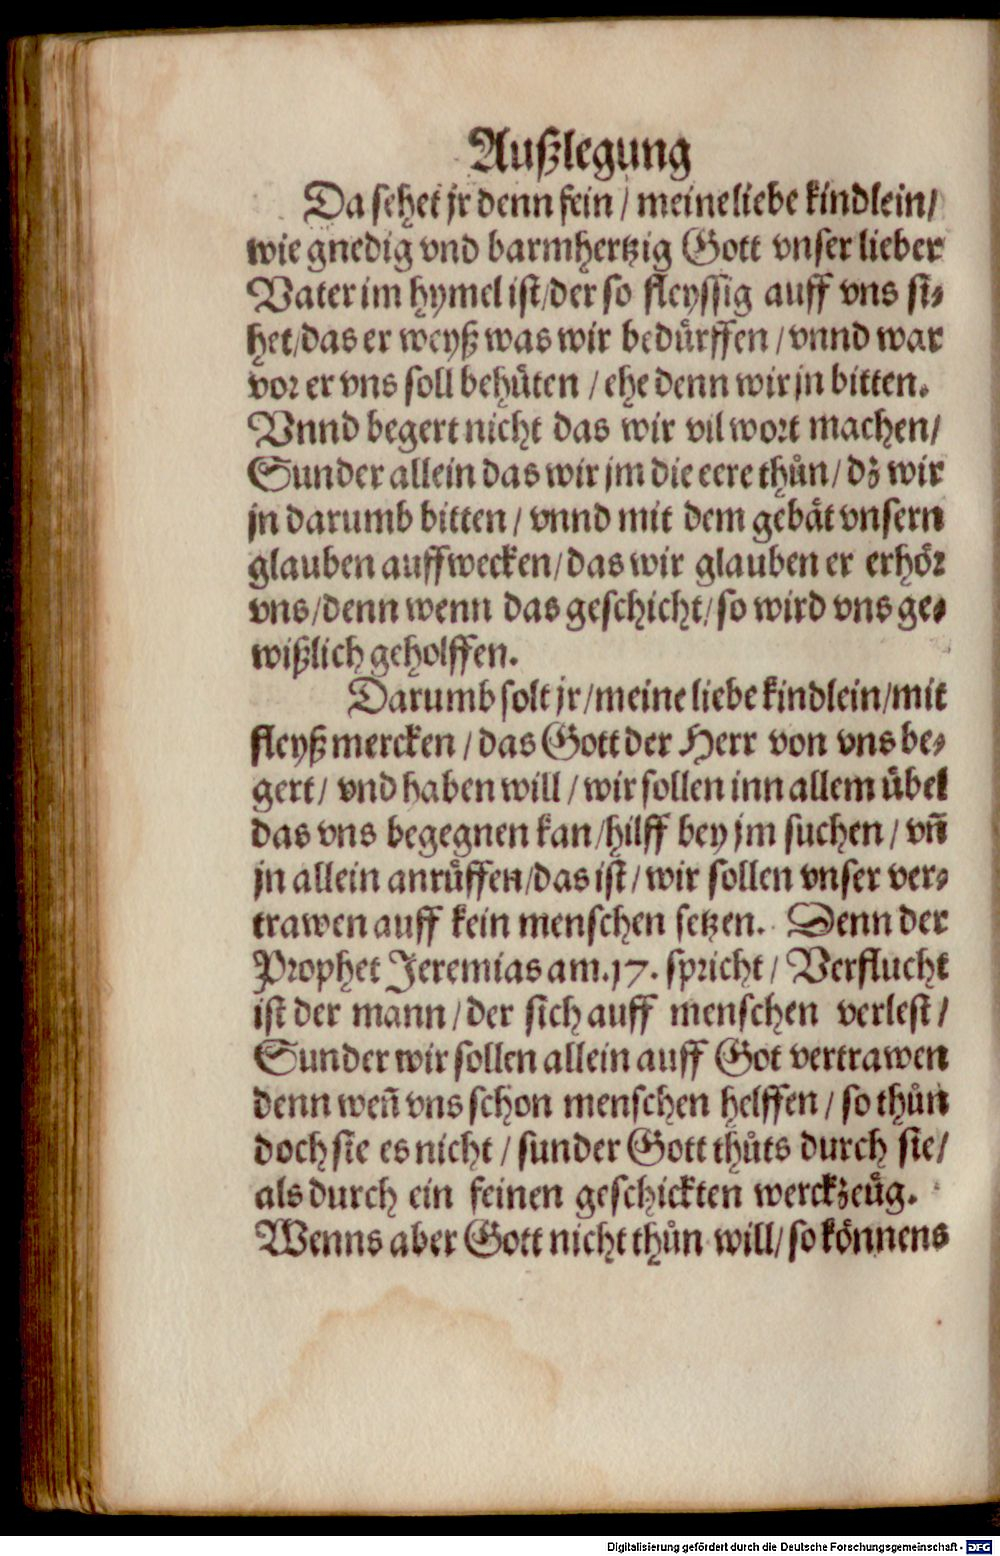 Außlegung
Da sehet jr denn fein / meine liebe kindlein /
wie gnedig vnd barmhertzig Gott vnser lieber
Vater im hymel ist / der so fleyssig auff vns si⸗
het / das er weyß was wir bedürffen / vnnd war
vor er vns soll behüten / ehe denn wir jn bitten.
Vnnd begert nicht das wir vil wort machen /
Sunder allein das wir jm die eere thůn / dz wir
jn darumb bitten / vnnd mit dem gebät vnsern
glauben auffwecken / das wir glauben er erhör
vns / denn wenn das geschicht / so wird vns ge⸗
wißlich geholffen.
Darumb solt jr / meine liebe kindlein / mit
fleyß mercken / das Gott der Herr von vns be⸗
gert / vnd haben will / wir sollen inn allem übel
das vns begegnen kan / hilff bey jm suchen / vñ
jn allein anrüffen / das ist / wir sollen vnser ver⸗
trawen auff kein menschen setzen. Denn der
Prophet Jeremias am .17. spricht / Verflucht
ist der mann / der sich auff menschen verlest /
Sunder wir sollen allein auff Got vertrawen
denn weñ vns schon menschen helffen / so thůn
doch sie es nicht / sunder Gott thůts durch sie /
als durch ein feinen geschickten werckzeüg.
Wenns aber Gott nicht thůn will / so könnens
Digitalisierung gefördert durch die Deutsche Forschungsgemeinschaft - DFG